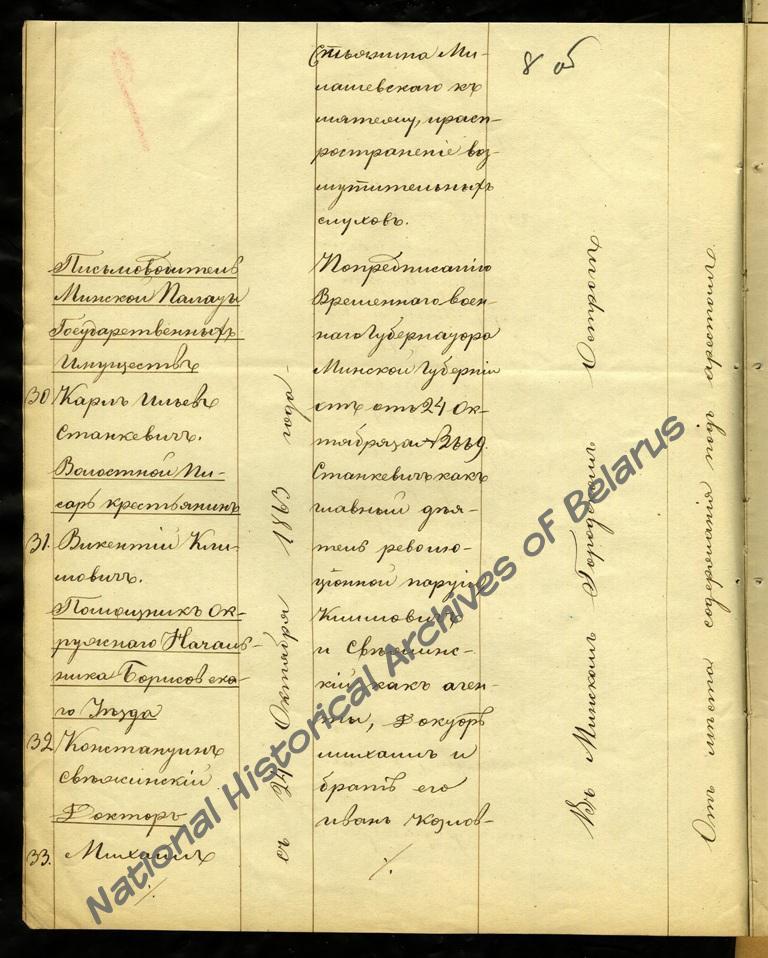 8 об
Письмоводитель
Минской Палаты
Государственныхъ
Имуществъ
30 Карлъ Ильевъ
Станкевичъ.
Волостной Пи-
сарь крестьянинъ
31. Викентій Кли-
мовичъ.
Помощникъ Ок-
ружнаго Началь-
ника Борисовска-
го Уѣзда
32 Константинъ
Свѣжинскій
Докторъ
33. Михаилъ
·/.
съ 24 Октября 1863 года
Милашевскаго къ
мятежу, и расп-
ространеніе воз-
мутительныхъ
слуховъ.
По предписанію
Временнаго воен-
наго Губернатора
Минской Губерніи
отъ 24 Ок-
тября за №
Станкевичъ какъ
главный дѣя-
тель револю-
ціонной партіи
Климовичъ
и Свѣжинс-
кій какъ аген-
ты, Докторъ
Михаилъ и
братъ его
Иванъ Козлов-
·/.
Въ Минскомъ Городскомъ Острогѣ
Отъ мѣста содержанія подъ арестомъ
National Historical Archives of Belarus